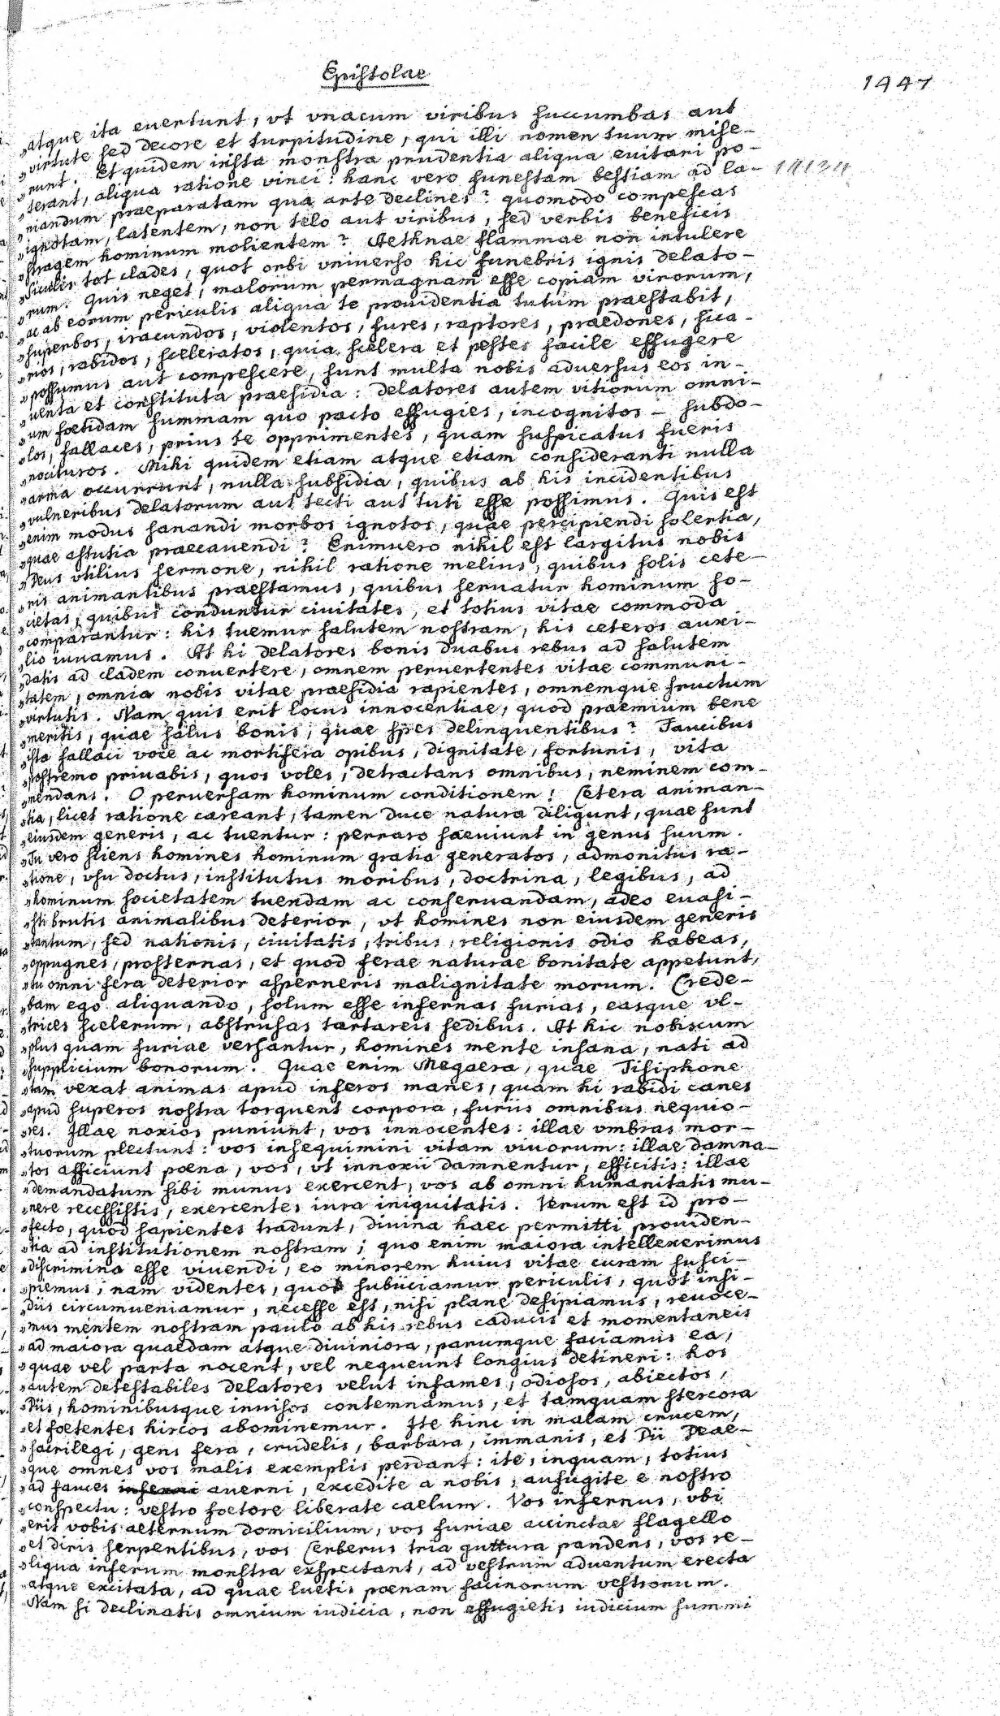 Epistolae
1447
„atque ita euertunt, vt vnacum viribus succumbas aut
„virtute sed decore et turpitudine, qui illi nomen tuum mise-
„runt. Et quidem iusta monstra prudentia aliqua euitari po-
14134
„terant, aliqua ratione vinci: hanc vero funestam bestiam ad la-
„mandum praeparatam qua arte declines? quomodo compescas
„ignotam, latentem, non telo aut viribus, sed verbis beneficis
„stragem hominum molientem? Aethnae flammae non intulere
„siculis tot clades, quot orbi vniuerso hic funebris ignis delato-
„rum. Quis neget, malorum permagnam esse copiam virorum,
„ac ab eorum periculis aliqua te prouidentia tutum praestabit,
„superbos, iracundos, violentos, fures, raptores, praedones, sica-
„rios, rabidos, sceleratos, quia scelera et pestes facile effugere
„possumus aut compescere, sunt multa nobis aduersus eos in-
„uenta et constituta praesidia: delatores autem vitiorum omni-
„um foetidam summam quo pacto effugies, incognitos - subdo-
„los, fallaces, prius te opprimentes, quam suspicatus fueris
„nocituros. Mihi quidem etiam atque etiam consideranti nulla
„arma occurrunt, nulla subsidia, quibus ab his incidentibus
„vulneribus delatorum aut tecti aut tuti esse possimus. Quis est
„enim modus sanandi morbos ignotos, quae percipiendi solertia,
„quae astutia praecauendi? Enimuero nihil est largitus nobis
„Deus vtilius sermone, nihil ratione melius, quibus solis cete-
„ris animantibus praestamus, quibus seruatur hominum so-
„cietas, quibus conduntur ciuitates, et totius vitae commoda
„comparantur: his tuemur salutem nostram, his ceteros auxi-
„lio iuuamus. At hi delatores bonis duabus rebus ad salutem
„datis ad cladem conuertere, omnem peruertentes vitae communi-
„tatem, omnia nobis vitae praesidia rapientes, omnemque fructum
„virtutis. Nam quis erit locus innocentiae, quod praemium bene
„meritis, quae salus bonis, quae spes delinquentibus? Faucibus
„ista fallaci voce ac mortifera opibus, dignitate, fortunis, vita
„postremo priuabis, quos voles, detractans omnibus, neminem com-
„mendans. O peruersam hominum conditionem! Cetera animan-
„tia, licet ratione careant, tamen duce natura diligunt, quae sunt
„eiusdem generis, ac tuentur: perraro saeuiunt in genus suum.
„Tu vero sciens homines hominum gratia generatos, admonitus ra-
„tione, vsu doctus, institutus moribus, doctrina, legibus, ad
„hominum societatem tuendam ac conseruandam, adeo euasi-
„sti brutis animalibus deterior, vt homines non eiusdem generis
„tantum, sed nationis, ciuitatis, tribus, religionis odio habeas,
„oppugnes, prosternas, et quod ferae naturae bonitate appetunt,
„tu omni fera deterior asperneris malignitate morum. Crede-
„bam ego aliquando, solum esse infernas furias, easque vl-
„trices scelerum, abstrusas tartareis sedibus. At hic nobiscum
„plus quam furiae versantur, homines mente insana, nati ad
„supplicium bonorum. Quae enim Megaera, quae Tisiphone
„tam vexat animas apud inferos manes, quam hi rabidi canes
„apud superos nostra torquent corpora, furiis omnibus nequio-
„res. Illae noxios puniunt, vos innocentes: illae vmbras mor-
„tuorum plectunt: vos insequimini vitam viuorum: illae damna-
„tos afficiunt poena, vos, vt innoxii damnentur, efficitis: illae
„demandatum sibi munus exercent, vos ab omni humanitatis mu-
„nere recessistis, exercentes iura iniquitatis. Verum est id pro-
„fecto, quod sapientes tradunt, diuina haec permitti prouiden-
„tia ad institutionem nostram; quo enim maiora intellexerimus
„discrimina esse viuendi, eo minorem huius vitae curam susci-
„piemus; nam videntes, quot subiiciamur periculis, quot insi-
„diis circumueniamur, necesse est, nisi plane desipiamus, reuoce-
„mus mentem nostram paulo ab his rebus caducis et momentaneis
„ad maiora quaedam atque diuiniora, parumque faciamus ea,
„quae vel parta nocent, vel nequeunt longius detineri: hos
„autem detestabiles delatores velut infames, odiosos, abiectos,
„Diis, hominibusque inuisos contemnamus, et tamquam stercora
„et foetentes hircos abominemur. Ite hinc in malam crucem,
„sacrilegi, gens fera, crudelis, barbara, immanis, et Dii Deae-
„que omnes vos malis exemplis perdant: ite, inquam, totius
„ad fauces auerni, excedite a nobis, aufugite e nostro
„conspectu: vestro foetore liberate caelum. Vos infernus, vbi
„erit vobis aeternum domicilium, vos furiae accinctae flagello
„et diris serpentibus, vos Cerberus tria guttura pandens, vos re-
„liqua inferum monstra exspectant, ad vestrum aduentum erecta
„atque excitata, ad quae luetis poenam facinorum vestrorum.
„Nam si declinatis omnium iudicia, non effugietis iudicium summi